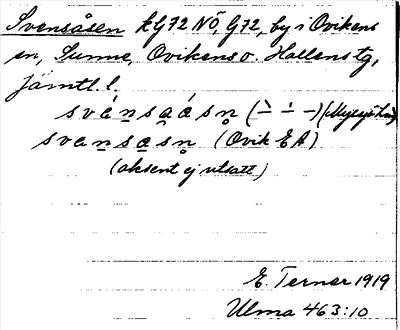 Svensåsen kG72 NÖ, G72, by i Ovikens
sn, Sunne, Ovikens o. Hallens tg,
Jämtl. l.
svánsaásn (– – –) (Myssjö
svansasn (Ovik EA)
(aksent ej utsatt)
E. Terner 1919
Ulma 463:10